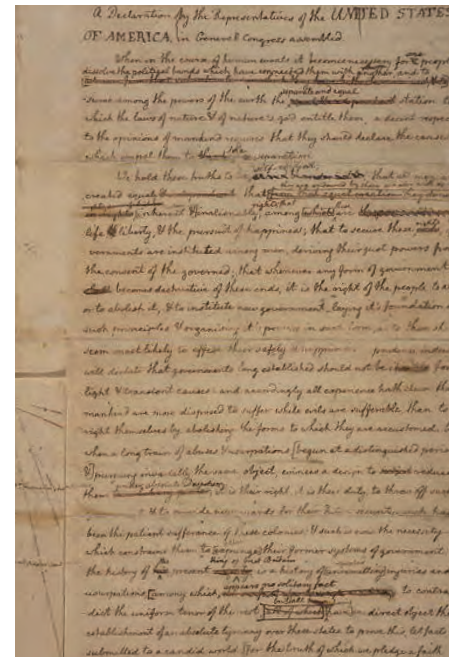 A Declaration by the Representatives of the UNITED STATES
OF AMERICA, in General Congress assembled.
When in the course of human events it becomes necessary for one people
dissolve the political bands which have connected them with another, and to
separate and equal
-sume among the powers of the earth the station to
which the laws of nature & of nature's god entitle them, a decent respec
to the opinions of mankind requires that they should declare the causes
which impel them to the separation.
We hold these truths to be self-evident that
created equal that
rights; that
inherent & inalienable, among these are
life liberty, & the pursuit of happiness; that to secure these rights
vernments are instituted among men, deriving their just powers fro
the consent of the governed; that whenever any form of government
becomes destructive of these ends, it is the right of the people to a
or to abolish it, & to institute new government, laying it's foundation
such principles & organising it's powers in such form, as to them sh
seem most likely to effect their safety & happiness. prudence indeed
will declare that governments long established should not be for
light & transient causes: and accordingly all experience hath shewn tha
mankind are more disposed to suffer while evils are sufferable, than to
right themselves by abolishing the forms to which they are accustomed.
when a long train of abuses & usurpations [begun at a distinguished perio
&] pursuing invariably the same object, evinces a design to reduce
under absolute Despotism
them it is their right, it is their duty, to throw off such
& to provide new guards for their security. such has
been the patient sufferance of these colonies; & such is now the necessity
which constrains them to [expunge] their former systems of government.
king of Great Britain
the history of the present is a history of injuries and
appears no solitary fact
usurpations [among which, to contra
dict the uniform tenor of the rest have in direct object the
establishment of an absolute tyranny over these states. to prove this, let facts
submitted to a candid world [for the truth of which we pledge a faith